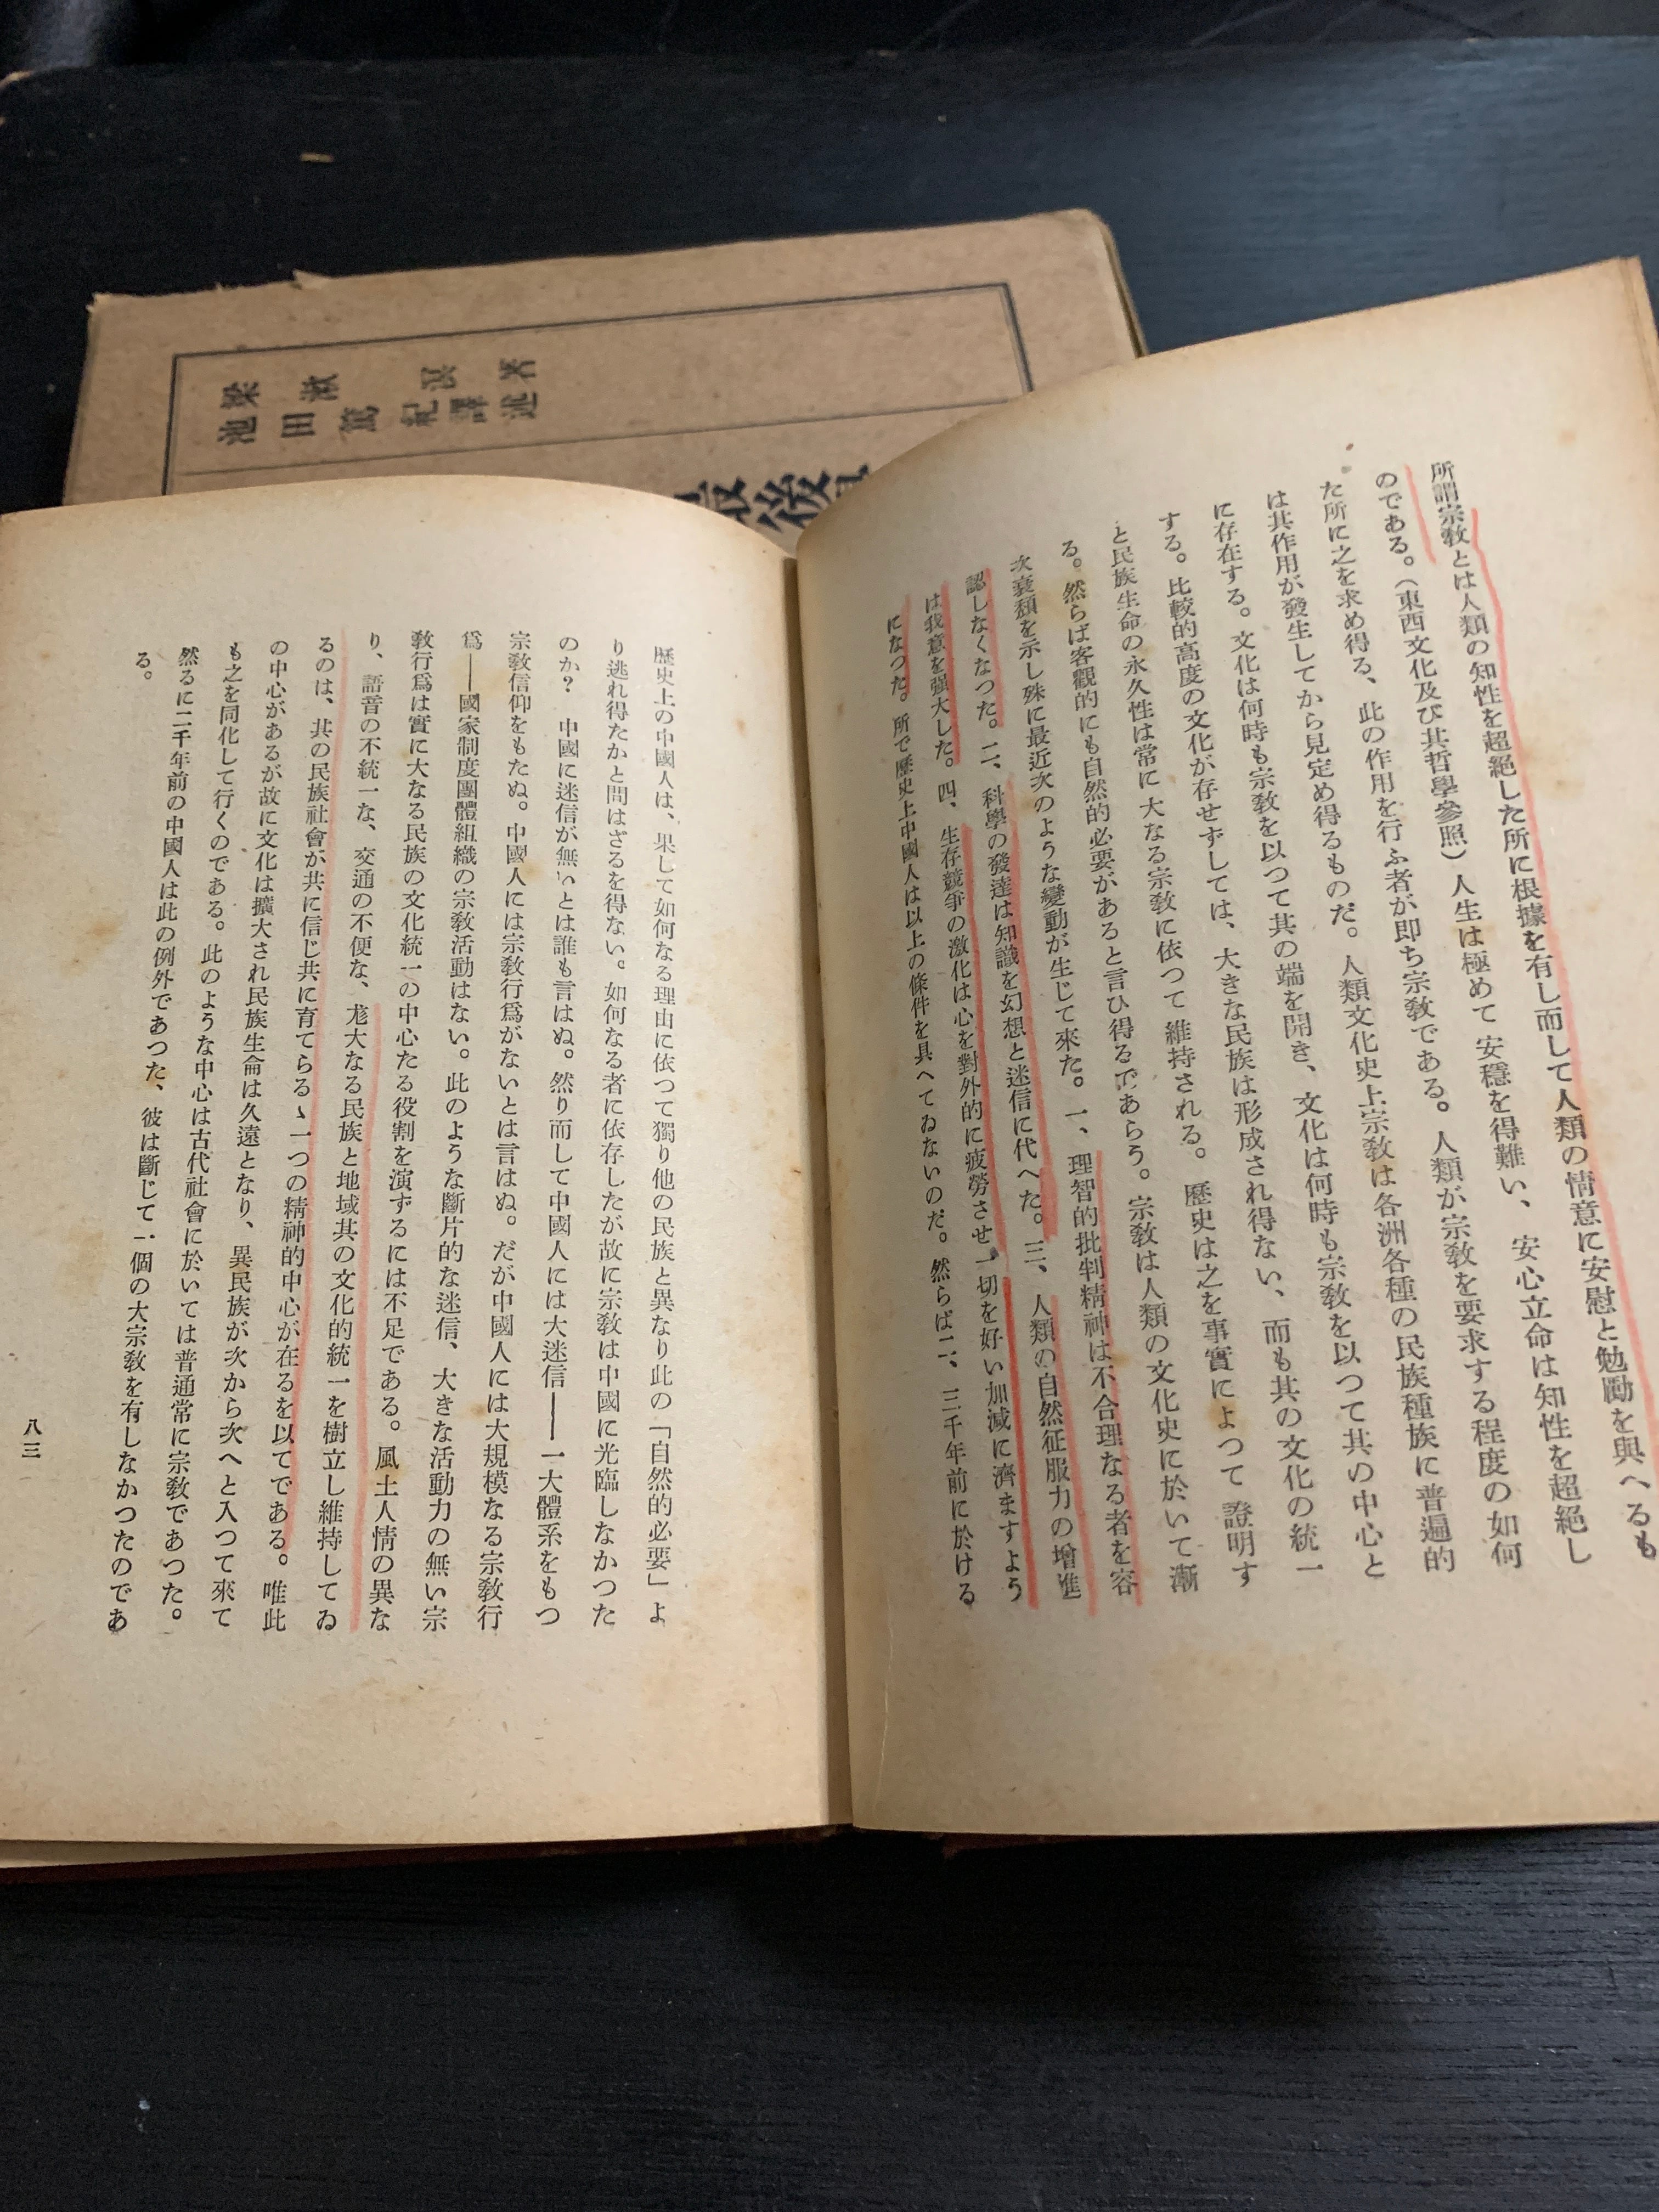 梁漱溟述著
池田篤紀譯
最後
所謂宗教とは人類の知性を超絶した所に根據を有し而して人類の情意に安慰と勉勵を與へるも
のである。（東西文化及び其哲學參照）人生は極めて安穩を得難い、安心立命は知性を超絶し
た所に之を求め得る、此の作用を行ふ者が即ち宗教である。人類が宗教を要求する程度の如何
は其作用が發生してから見定め得るものだ。人類文化史上宗教は各洲各種の民族種族に普遍的
に存在する。文化は何時も宗教を以つて其の端を開き、文化は何時も宗教を以つて其の中心と
する。比較的高度の文化が存せずしては、大きな民族は形成され得ない、而も其の文化の統一
と民族生命の永久性は常に大なる宗教に依つて維持される。歷史は之を事實によつて證明す
る。然らば客觀的にも自然的必要があると言ひ得るであらう。宗教は人類の文化史に於いて漸
次衰頽を示し殊に最近次のような變動が生じて來た。一、理智的批判精神は不合理なる者を容
認しなくなつた。二、科學の發達は知識を幻想と迷信に代へた。三、人類の自然征服力の增進
は我意を强大した。四、生存競爭の激化は心を對外的に疲勞させ一切を好い加減に濟ますよう
になつた。所で歷史上中國人は以上の條件を具へてゐないのだ。然らば二、三千年前に於ける
歷史上の中國人は、果して如何なる理由に依つて獨り他の民族と異なり此の「自然的必要」よ
り逃れ得たかと問はざるを得ない。如何なる者に依存したが故に宗教は中國に光臨しなかつた
のか？　中國に迷信が無いとは誰も言はぬ。然り而して中國人には大迷信――一大體系をもつ
宗教信仰をもたぬ。中國人には宗教行爲がないとは言はぬ。だが中國人には大規模なる宗教行
爲――國家制度團體組織の宗教活動はない。此のような斷片的な迷信、大きな活動力の無い宗
教行爲は實に大なる民族の文化統一の中心たる役割を演ずるには不足である。風土人情の異な
り、語音の不統一な、交通の不便な、尨大なる民族と地域其の文化的統一を樹立し維持してゐ
るのは、其の民族社會が共に信じ共に育てらるゝ一つの精神的中心が在るを以てである。唯此
の中心があるが故に文化は擴大され民族生命は久遠となり、異民族が次から次へと入つて來て
も之を同化して行くのである。此のような中心は古代社會に於いては普通常に宗教であつた。
然るに二千年前の中國人は此の例外であつた、彼は斷じて一個の大宗教を有しなかつたのであ
る。
八三